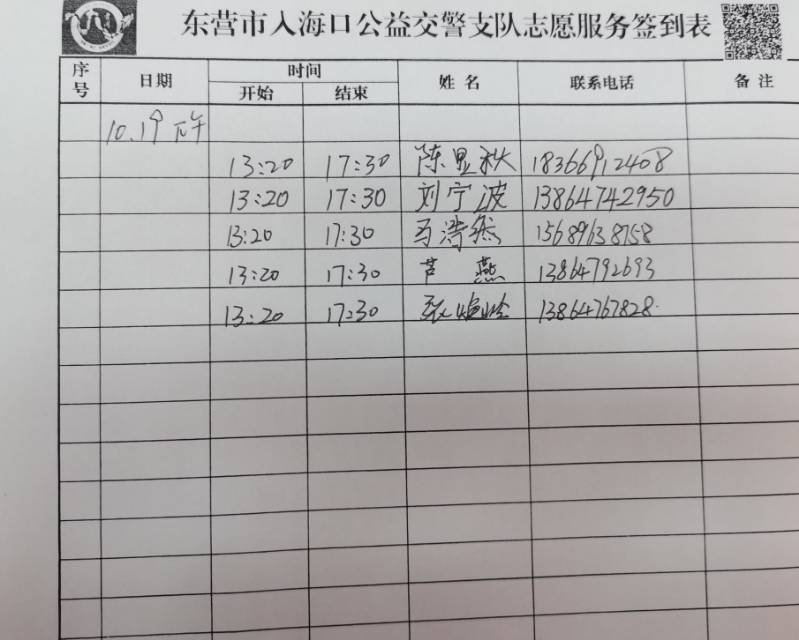 东营市入海口公益交警支队志愿服务签到表
序号 日期 时间 姓名 联系电话 备注
开始 结束
10.19下午
13:20 17:30 陈显秋 18366912408
13:20 17:30 刘宁波 13864742950
13:20 17:30 马浩然 15689638758
13:20 17:30 芦燕 13864792693
13:20 17:30 张 13864767828